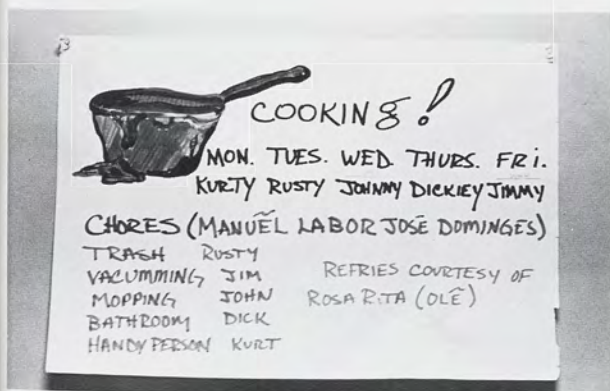 COOKING!
MON. TUES. WED. THURS. FRI.
KURTY RUSTY JOHNNY DICKIEY JIMMY
CHORES (MANUẼL LABOR JOSẼ DOMINGES)
TRASH RUSTY
VACUMMING JIM
MOPPING JOHN
BATHROOM DICK
HANDYPERSON KURT
REFRIES COURTESY OF
ROSA RITA (OLẼ)